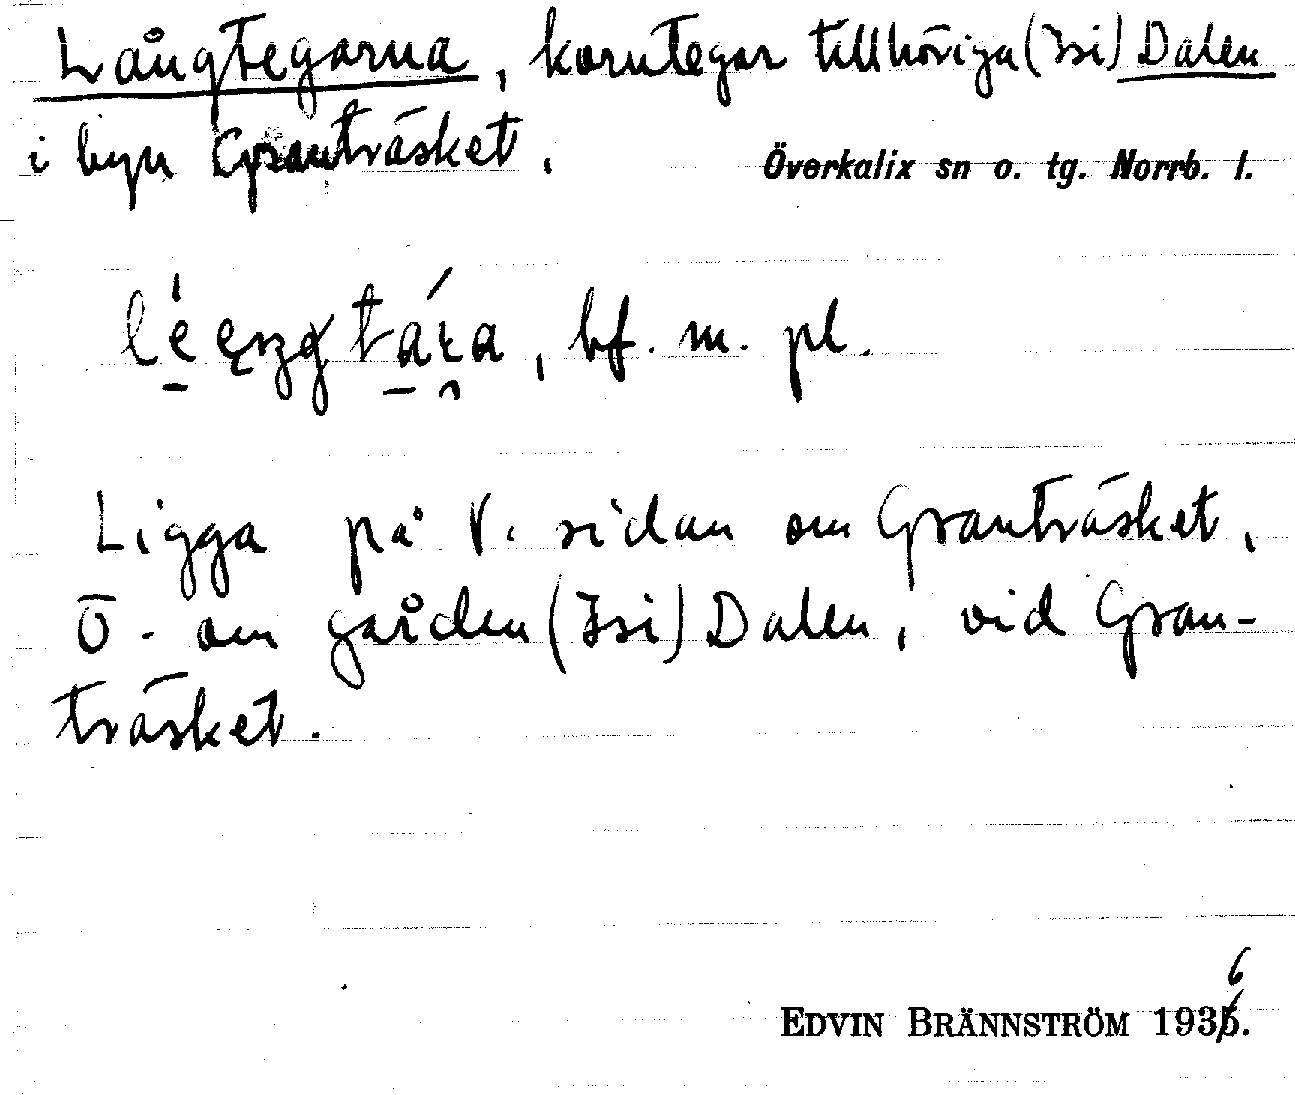 Långtegarna, korntegar tillhöriga (Isi) Dalen
i byn Granträsket.
Överkalix sn o. tg. Norrb. l.
bf. m. pl.
Ligga på V. sidan om Granträsket,
Ö. om gården (Isi) Dalen, vid Gran-
träsket.
EDVIN BRÄNNSTRÖM 1936.